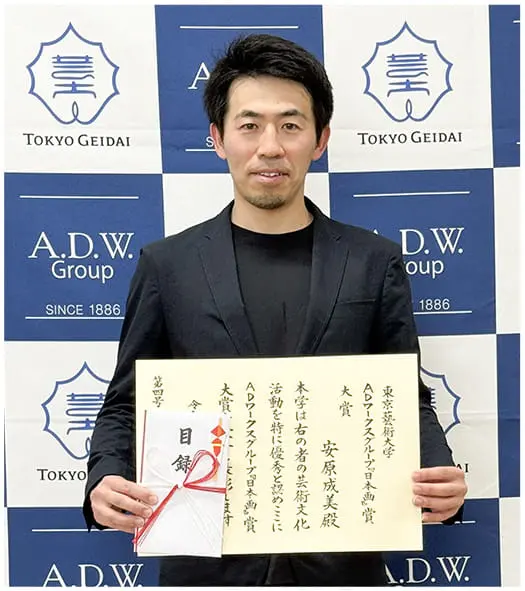 TOKYO GEIDAI
TOKYO GEIDAI
A.D.W.
Group
SINCE 1886
A.D.W.
Group
1886
東京藝術大学
ADワークスグループ『日本画』賞
大賞
安原成美殿
本学は右の者の芸術文化
活動を特に優秀と認めここに
ADワークスグループ『日本画』賞
大賞
令
第四号
目録
TOKYO
A.D.W.
A.D.W.